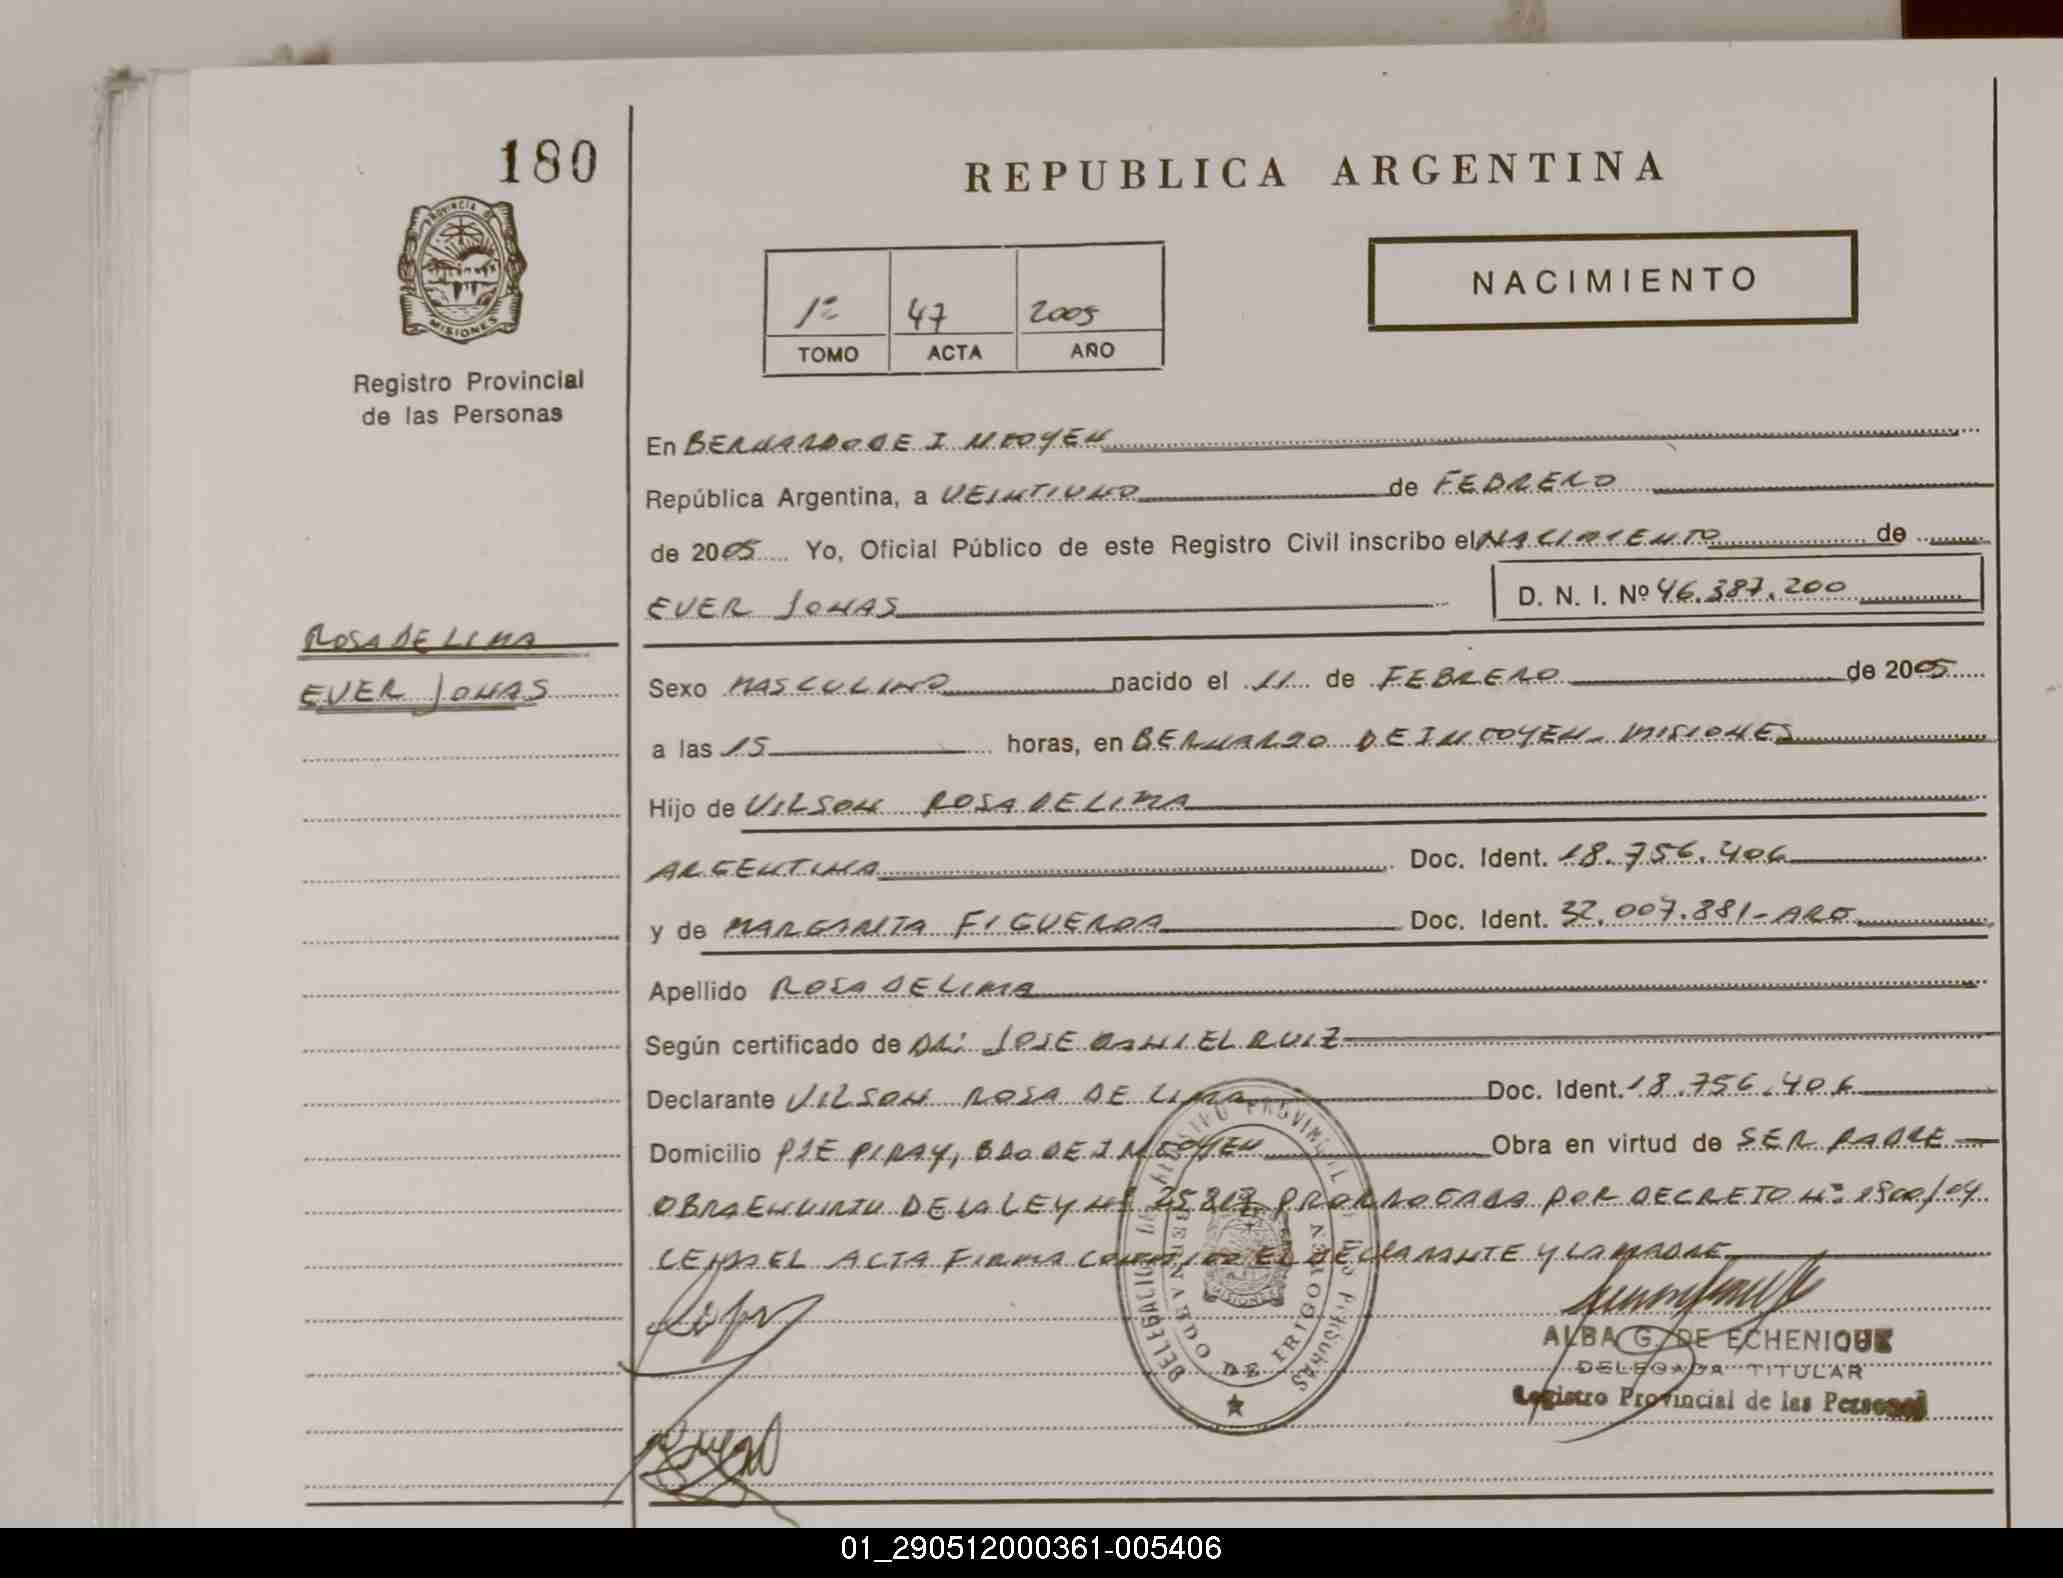 180
PROVINCIA DE
MISIONES
Registro Provincial
de las Personas
ROSA DE LIMA
EVER JONAS
REPUBLICA ARGENTINA
NACIMIENTO
1º 47 2005
TOMO ACTA AÑO
En BERNARDO DE IRIGOYEN
República Argentina, a VEINTIUNO de FEBRERO
de 2005 Yo, Oficial Público de este Registro Civil inscribo el NACIMIENTO de
EVER JONAS D. N. I. Nº 46.387.200
Sexo MASCULINO nacido el 11 de FEBRERO de 2005
a las 15 horas, en BERNARDO DE IRIGOYEN - MISIONES
Hijo de VILSON ROSA DE LIMA
ARGENTINA Doc. Ident. 18.756.406
y de MARGARITA FIGUEROA Doc. Ident. 32.007.881-ARG
Apellido ROSA DE LIMA
Según certificado de DR: JOSE DANIEL RUIZ
Declarante VILSON ROSA DE LIMA Doc. Ident. 18.756.406
Domicilio PJE PIRAY, BDO DE IRIGOYEN Obra en virtud de SER PADRE
OBRA EN VIRTU DE LA LEY Nº 25.819 PRORROGADA POR DECRETO Nº 1900/04
LEIDA EL ACTA FIRMA CONMIGO EL DECLARANTE Y LA MADRE
DELEGACION REGISTRO PROVINCIAL DE LAS PERSONAS
BERNARDO DE IRIGOYEN
MISIONES
ALBA G. DE ECHENIQUE
DELEGADA TITULAR
Registro Provincial de las Personas
01_290512000361-005406